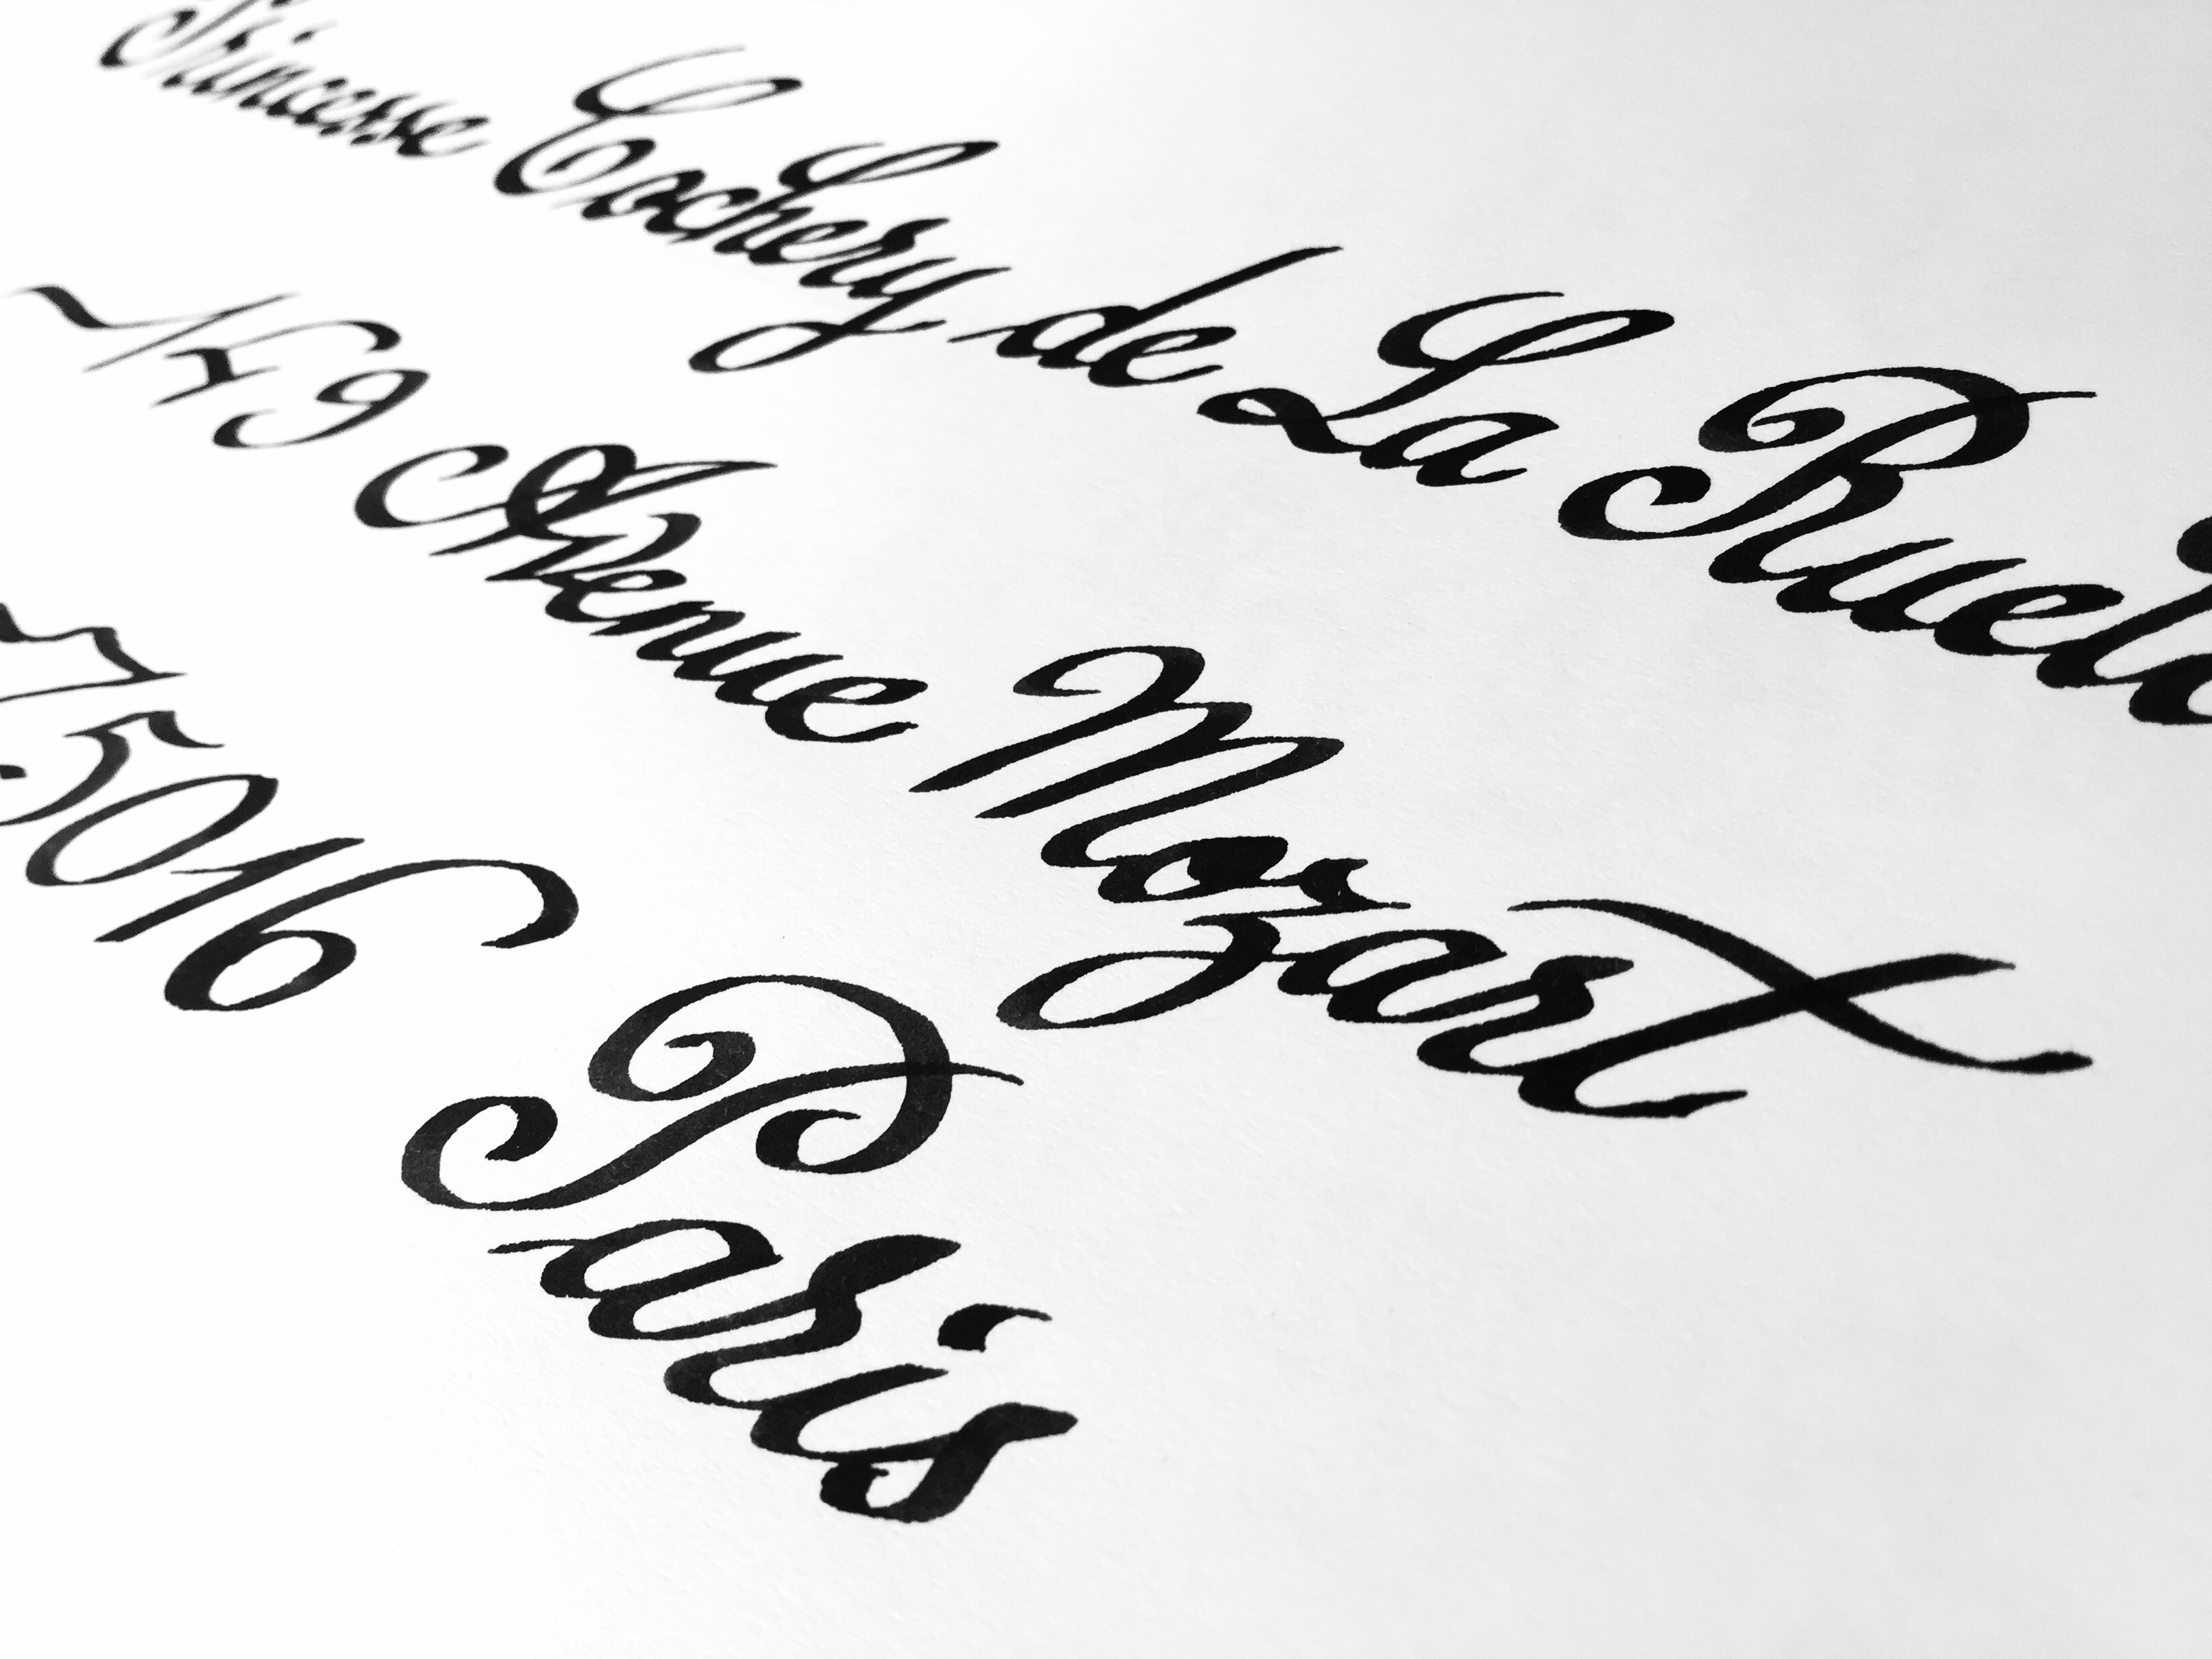 Princesse Cochery de La Ruelle
149 Avenue Mozart
75016 Paris